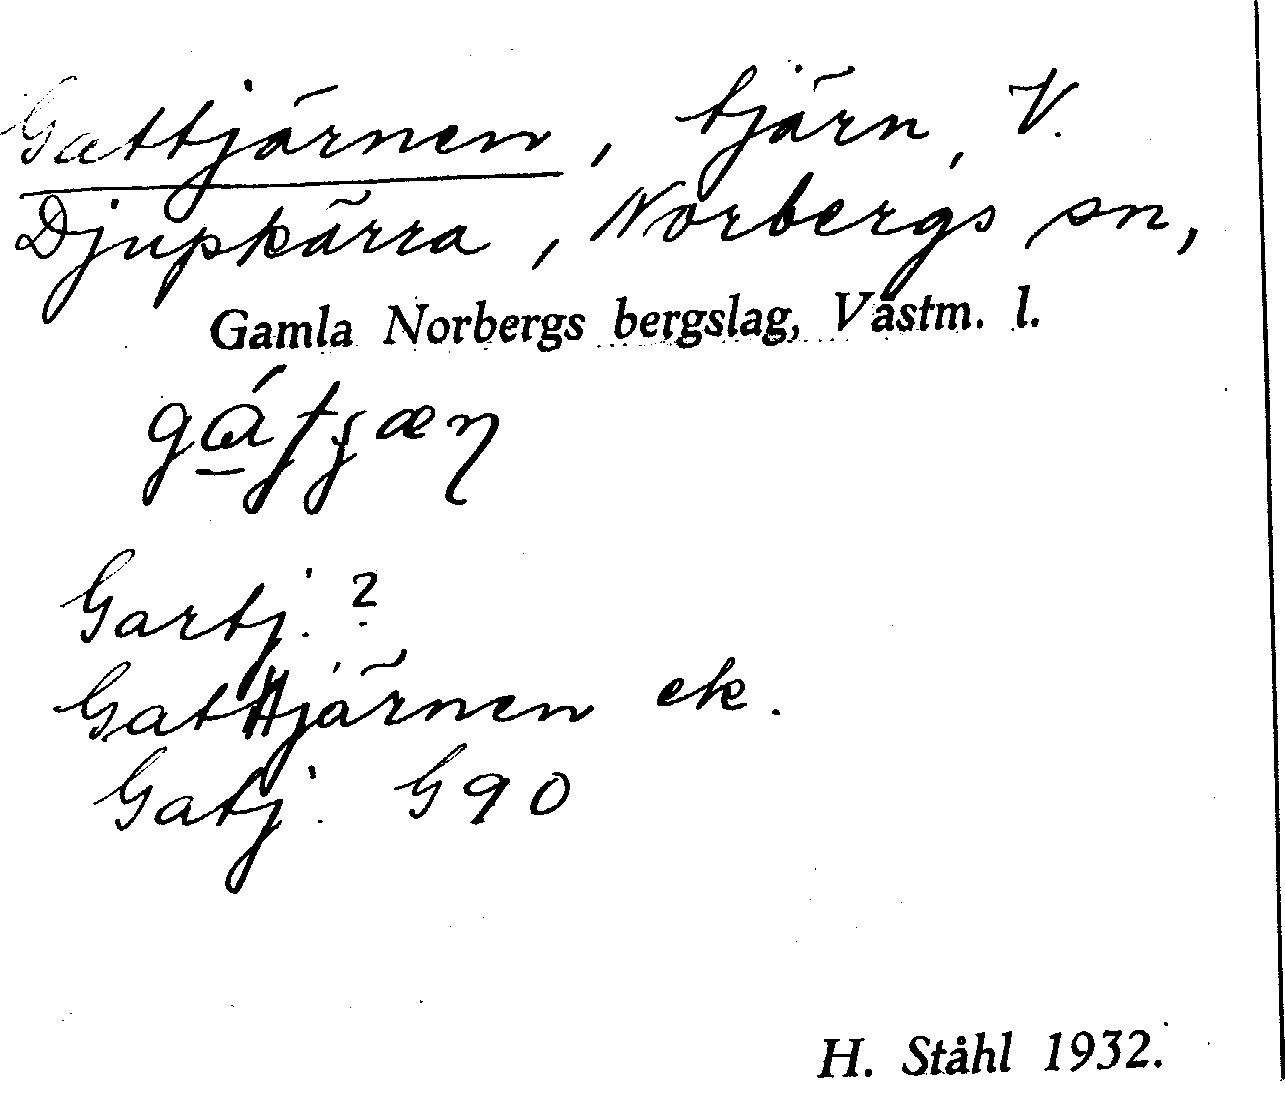 Gattjärnen, tjärn, V.
Djupkärra, Norbergs sn,
Gamla Norbergs bergslag, Västm. l.
Gartj. ?
Gattjärnen ek.
Gatj. G90
H. Ståhl 1932.